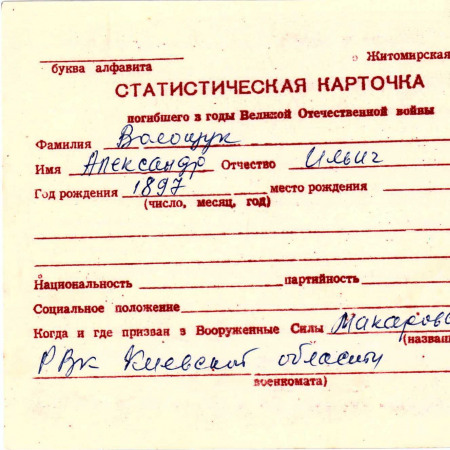 буква алфавита
Житомирская
СТАТИСТИЧЕСКАЯ КАРТОЧКА
погибшего в годы Великой Отечественной войны
Фамилия Волощук
Имя Александр Отчество Ильич
Год рождения 1897 место рождения
(число, месяц, год)
Национальность партийность
Социальное положение
Когда и где призван в Вооруженные Силы Макаровс
(назва
РВк Киевской области
военкомата)